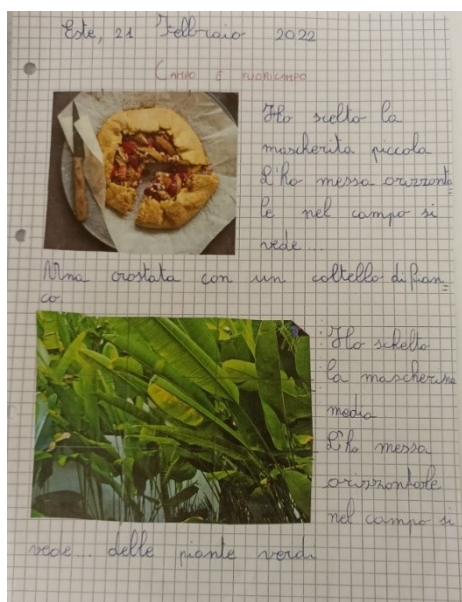 Este, 21 Febbraio 2022
CAMPO E FUORICAMPO
Ho scelto la
mascherita piccola
L'ho messa orizzonta=
le nel campo si
vede...
Una crostata con un coltello di fian=
co.
Ho schelto
la mascherina
media
L'ho messa
orizzontale
nel campo si
vede... delle piante verdi